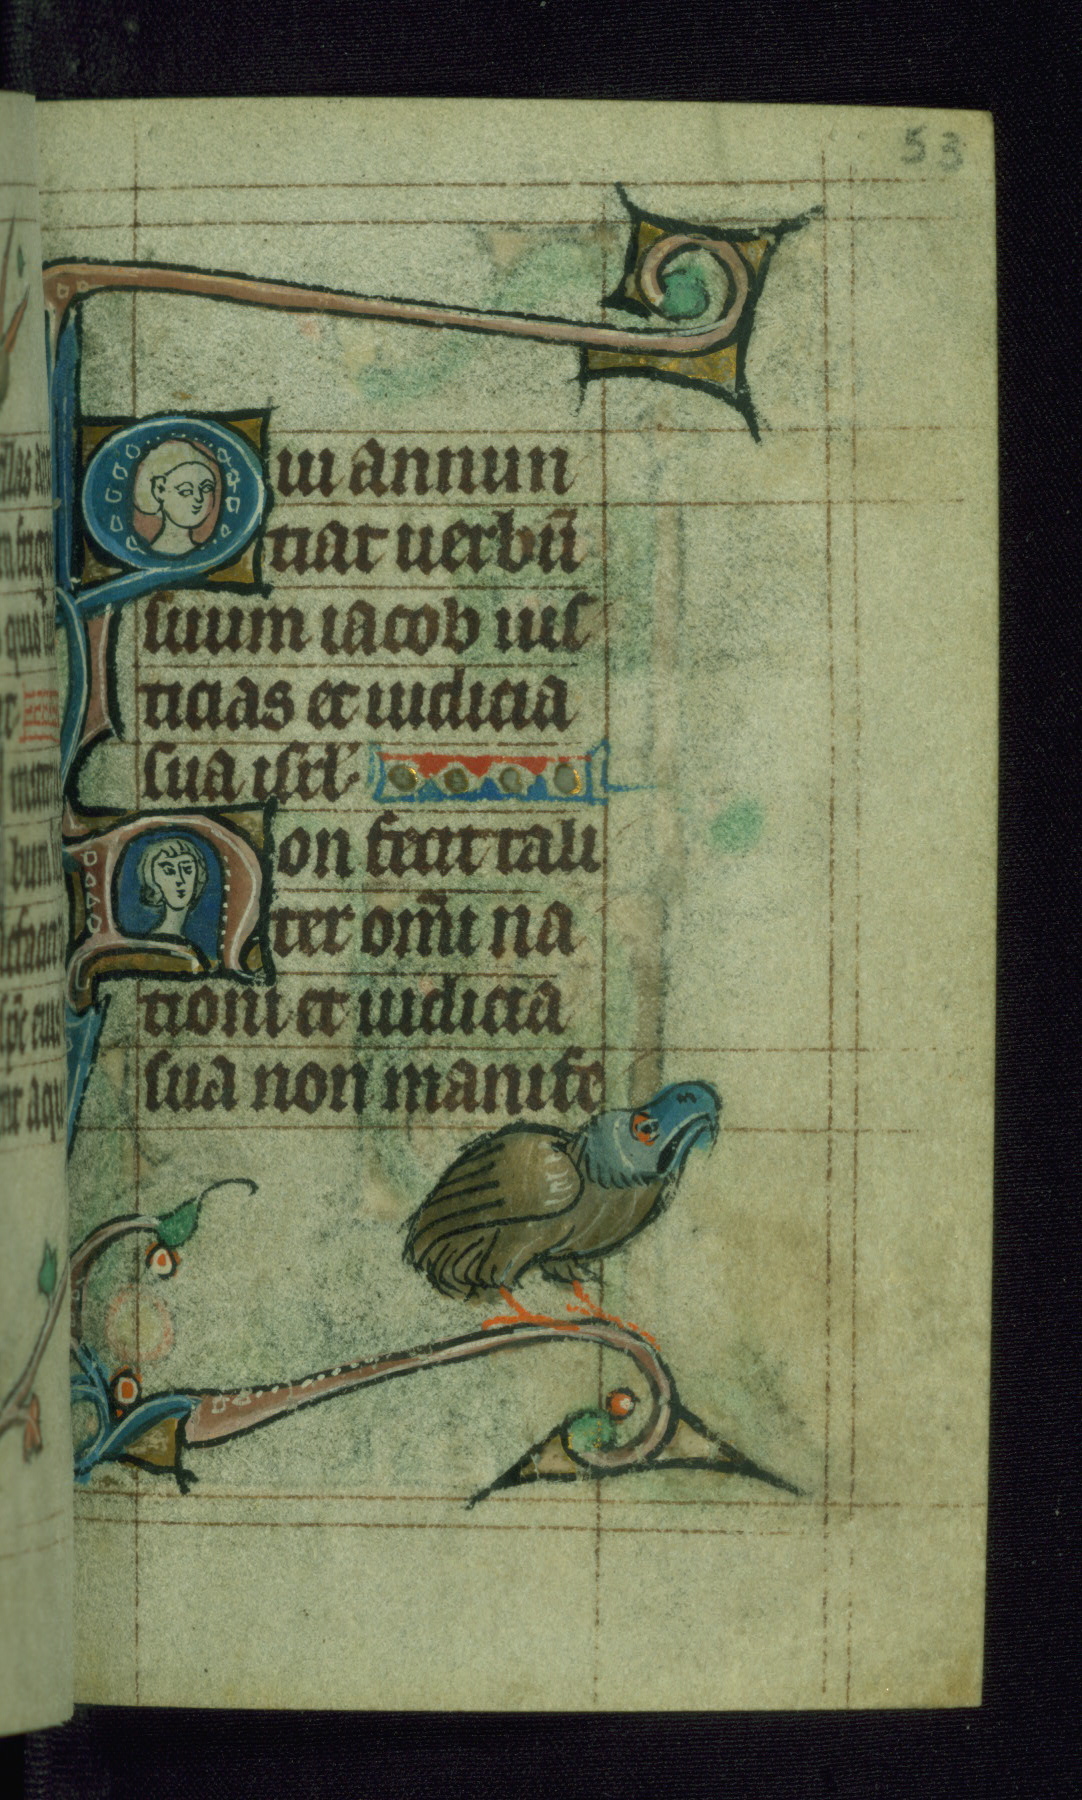 53
Qui annun
tiat uerbū
suum iacob ius
ticias et iudicia
sua isrl'
Non fecit tali
ter omī na
tioni et iudicia
sua non manife